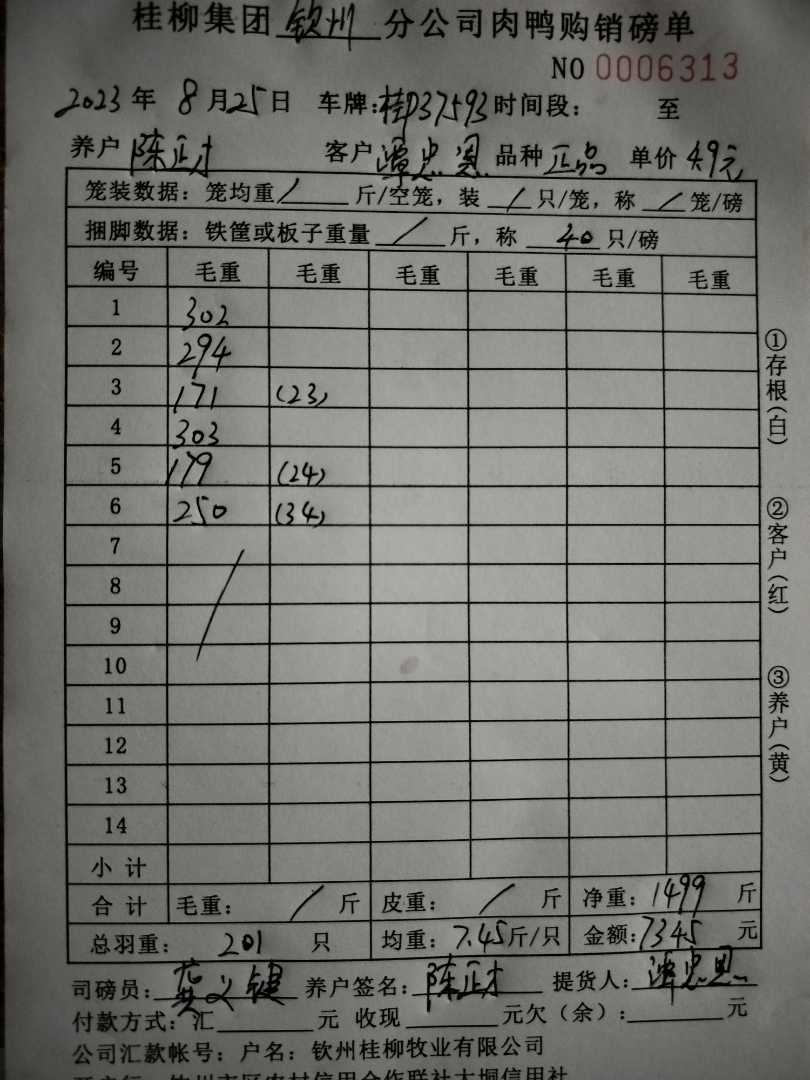 桂柳集团 钦州 分公司肉鸭购销磅单
NO 0006313
2023年 8月25日 车牌:桂D37593 时间段: 至
养户 陈正才 客户 谭忠恩 品种 正品 单价 4.9元
笼装数据:笼均重/斤/空笼,装/只/笼,称/笼/磅
捆脚数据:铁筐或板子重量/斤,称 40 只/磅
编号 毛重 毛重 毛重 毛重 毛重 毛重
1 302
2 294
3 171 (23)
4 303
5 179 (24)
6 250 (34)
7
8
9
10
11
12
13
14
小计
合计 毛重: / 斤 皮重: / 斤 净重:1499 斤
总羽重: 201 只 均重:7.45斤/只 金额:7345 元
司磅员:黄义键 养户签名:陈正才 提货人:谭忠恩
付款方式:汇 元 收现 元欠(余): 元
公司汇款帐号:户名:钦州桂柳牧业有限公司
开户行:钦州市区农村信用合作联社大垌信用社
①存根(白)
②客户(红)
③养户(黄)